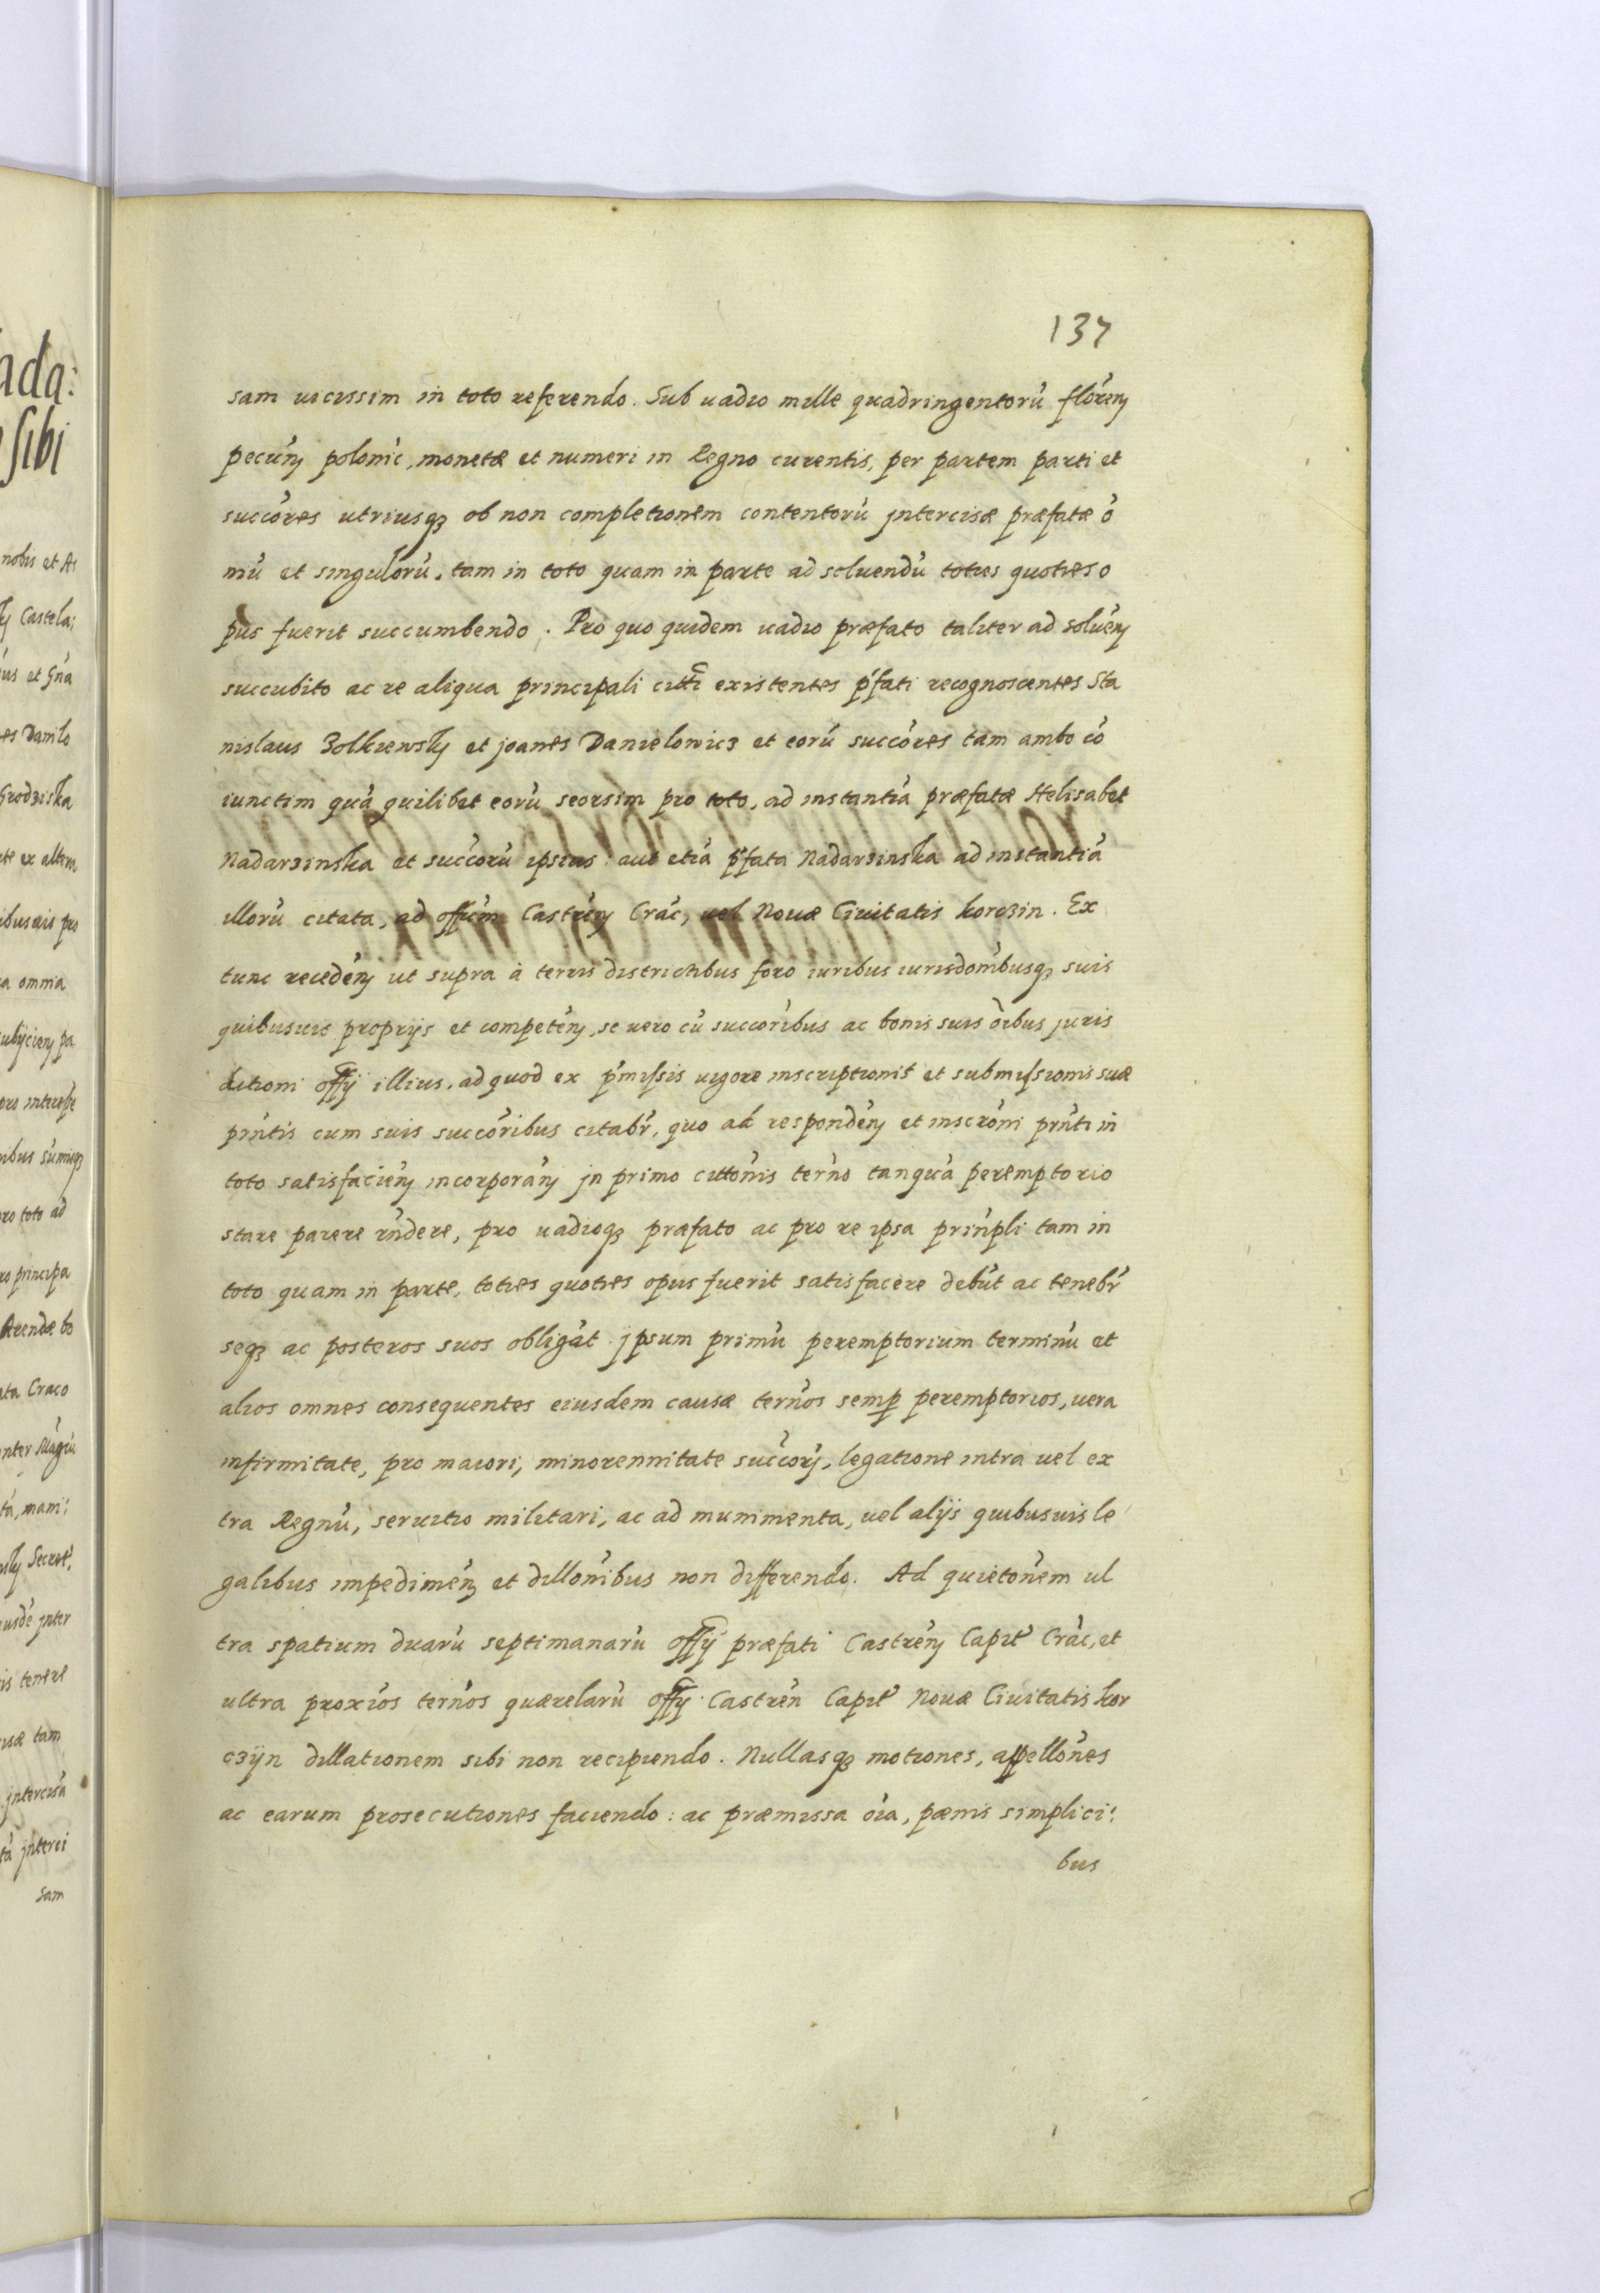 137
sam uicissim in toto referendo. Sub uadio mille quadringentorũ florẽn
pecũn polonic, monetæ et numeri in Regno curentis, per partem parti et
succões utriusq3 ob non completionem contentorũ jntercisæ præfatæ õ
niũ et singulorũ, tam in toto quam in parte ad soluendũ toties quoties o
pus fuerit succumbendo. Pro quo quidem uadio præfato taliter ad soluẽn
succubito ac re aliqua principali citti existentes p̃fati recognoscentes Sta
nislaus Zolkiewsky et joanes Danielowicz et eorũ succões tam ambo cõ
iunctim quã quilibet eorũ seorsim pro toto, ad instantiã præfatæ Helisabet
Nadarzinska et succorũ ipsius aut etiã p̃fata Nadarzinska ad instantiã
illorũ citata, ad offium Castrẽn Crac, uel Nouæ Ciuitatis korczin. Ex
tunc recedẽn ut supra à terris districtibus foro iuribus iurisdonibusq3 suis
quibusuis proprijs et competẽn, se uero cũ succoribus ac bonis suis õibus juris
ditioni offij illius, ad quod ex p̃missis uigore inscriptionis et submissionis suæ
pñtis cum suis succoribus citabr, quo ad respondẽn et inscroni pñti in
toto satisfaciẽn incorporãn jn primo cittonis terno tanquã peremptorio
stare parere rñdere, pro uadioq3 præfato ac pro re ipsa prinpli tam in
toto quam in parte, toties quoties opus fuerit satisfacere debũt ac tenebr
seq3 ac posteros suos obligãt jpsum primũ peremptorium terminũ et
alios omnes consequentes eiusdem causæ ternos semp peremptorios, uera
infirmitate, pro maiori, minorennitate succorũ, legatione intra uel ex
tra Regnũ, seruitio militari, ac ad munimenta, uel alijs quibusuis le
galibus impedimẽn et dillonibus non differendo. Ad quietonem ul
tra spatium duarũ septimanarũ offij præfati Castrẽn Capit Crac, et
ultra proxios ternos quærelarũ offij Castrẽn Capit Nouæ Ciuitatis kor
czÿn dillationem sibi non recipiendo. Nullasq3 motiones, appellones
ac earum prosecutiones faciendo: ac præmissa õia, pænis simplici:
bus